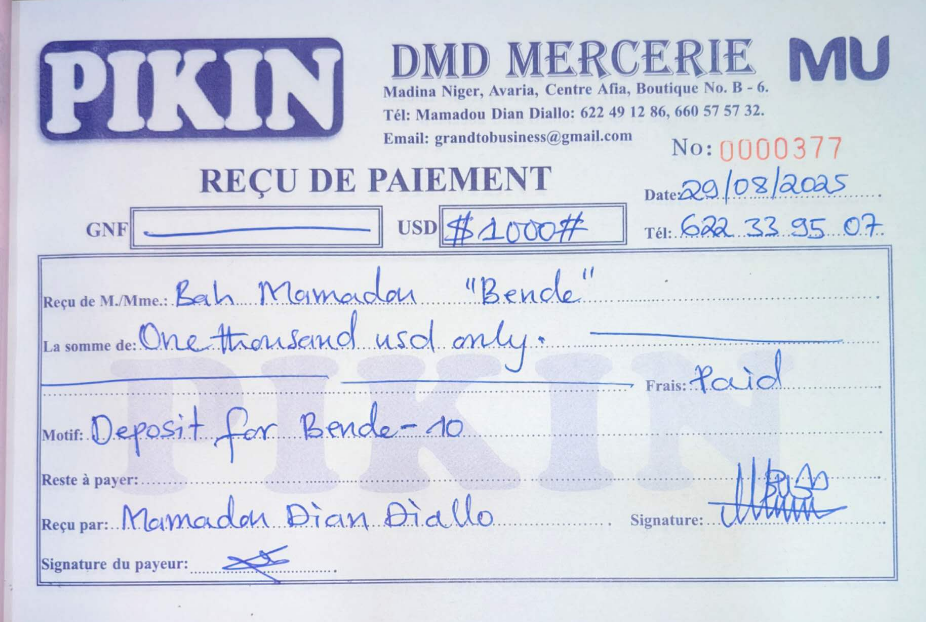 PIKIN
DMD MERCERIE
MU
Madina Niger, Avaria, Centre Afia, Boutique No. B - 6.
Tél: Mamadou Dian Diallo: 622 49 12 86, 660 57 57 32.
Email: grandtobusiness@gmail.com
No: 0000377
REÇU DE PAIEMENT
Date: 29/08/2025
GNF
USD #$1000#
Tél: 622 33 95 07
Reçu de M./Mme.: Bah Mamadou "Bende"
La somme de: One thousand usd only.
Frais: Paid
PIKIN
Motif: Deposit for Bende-10
Reste à payer:
Reçu par: Mamadou Dian Diallo
Signature:
Signature du payeur: